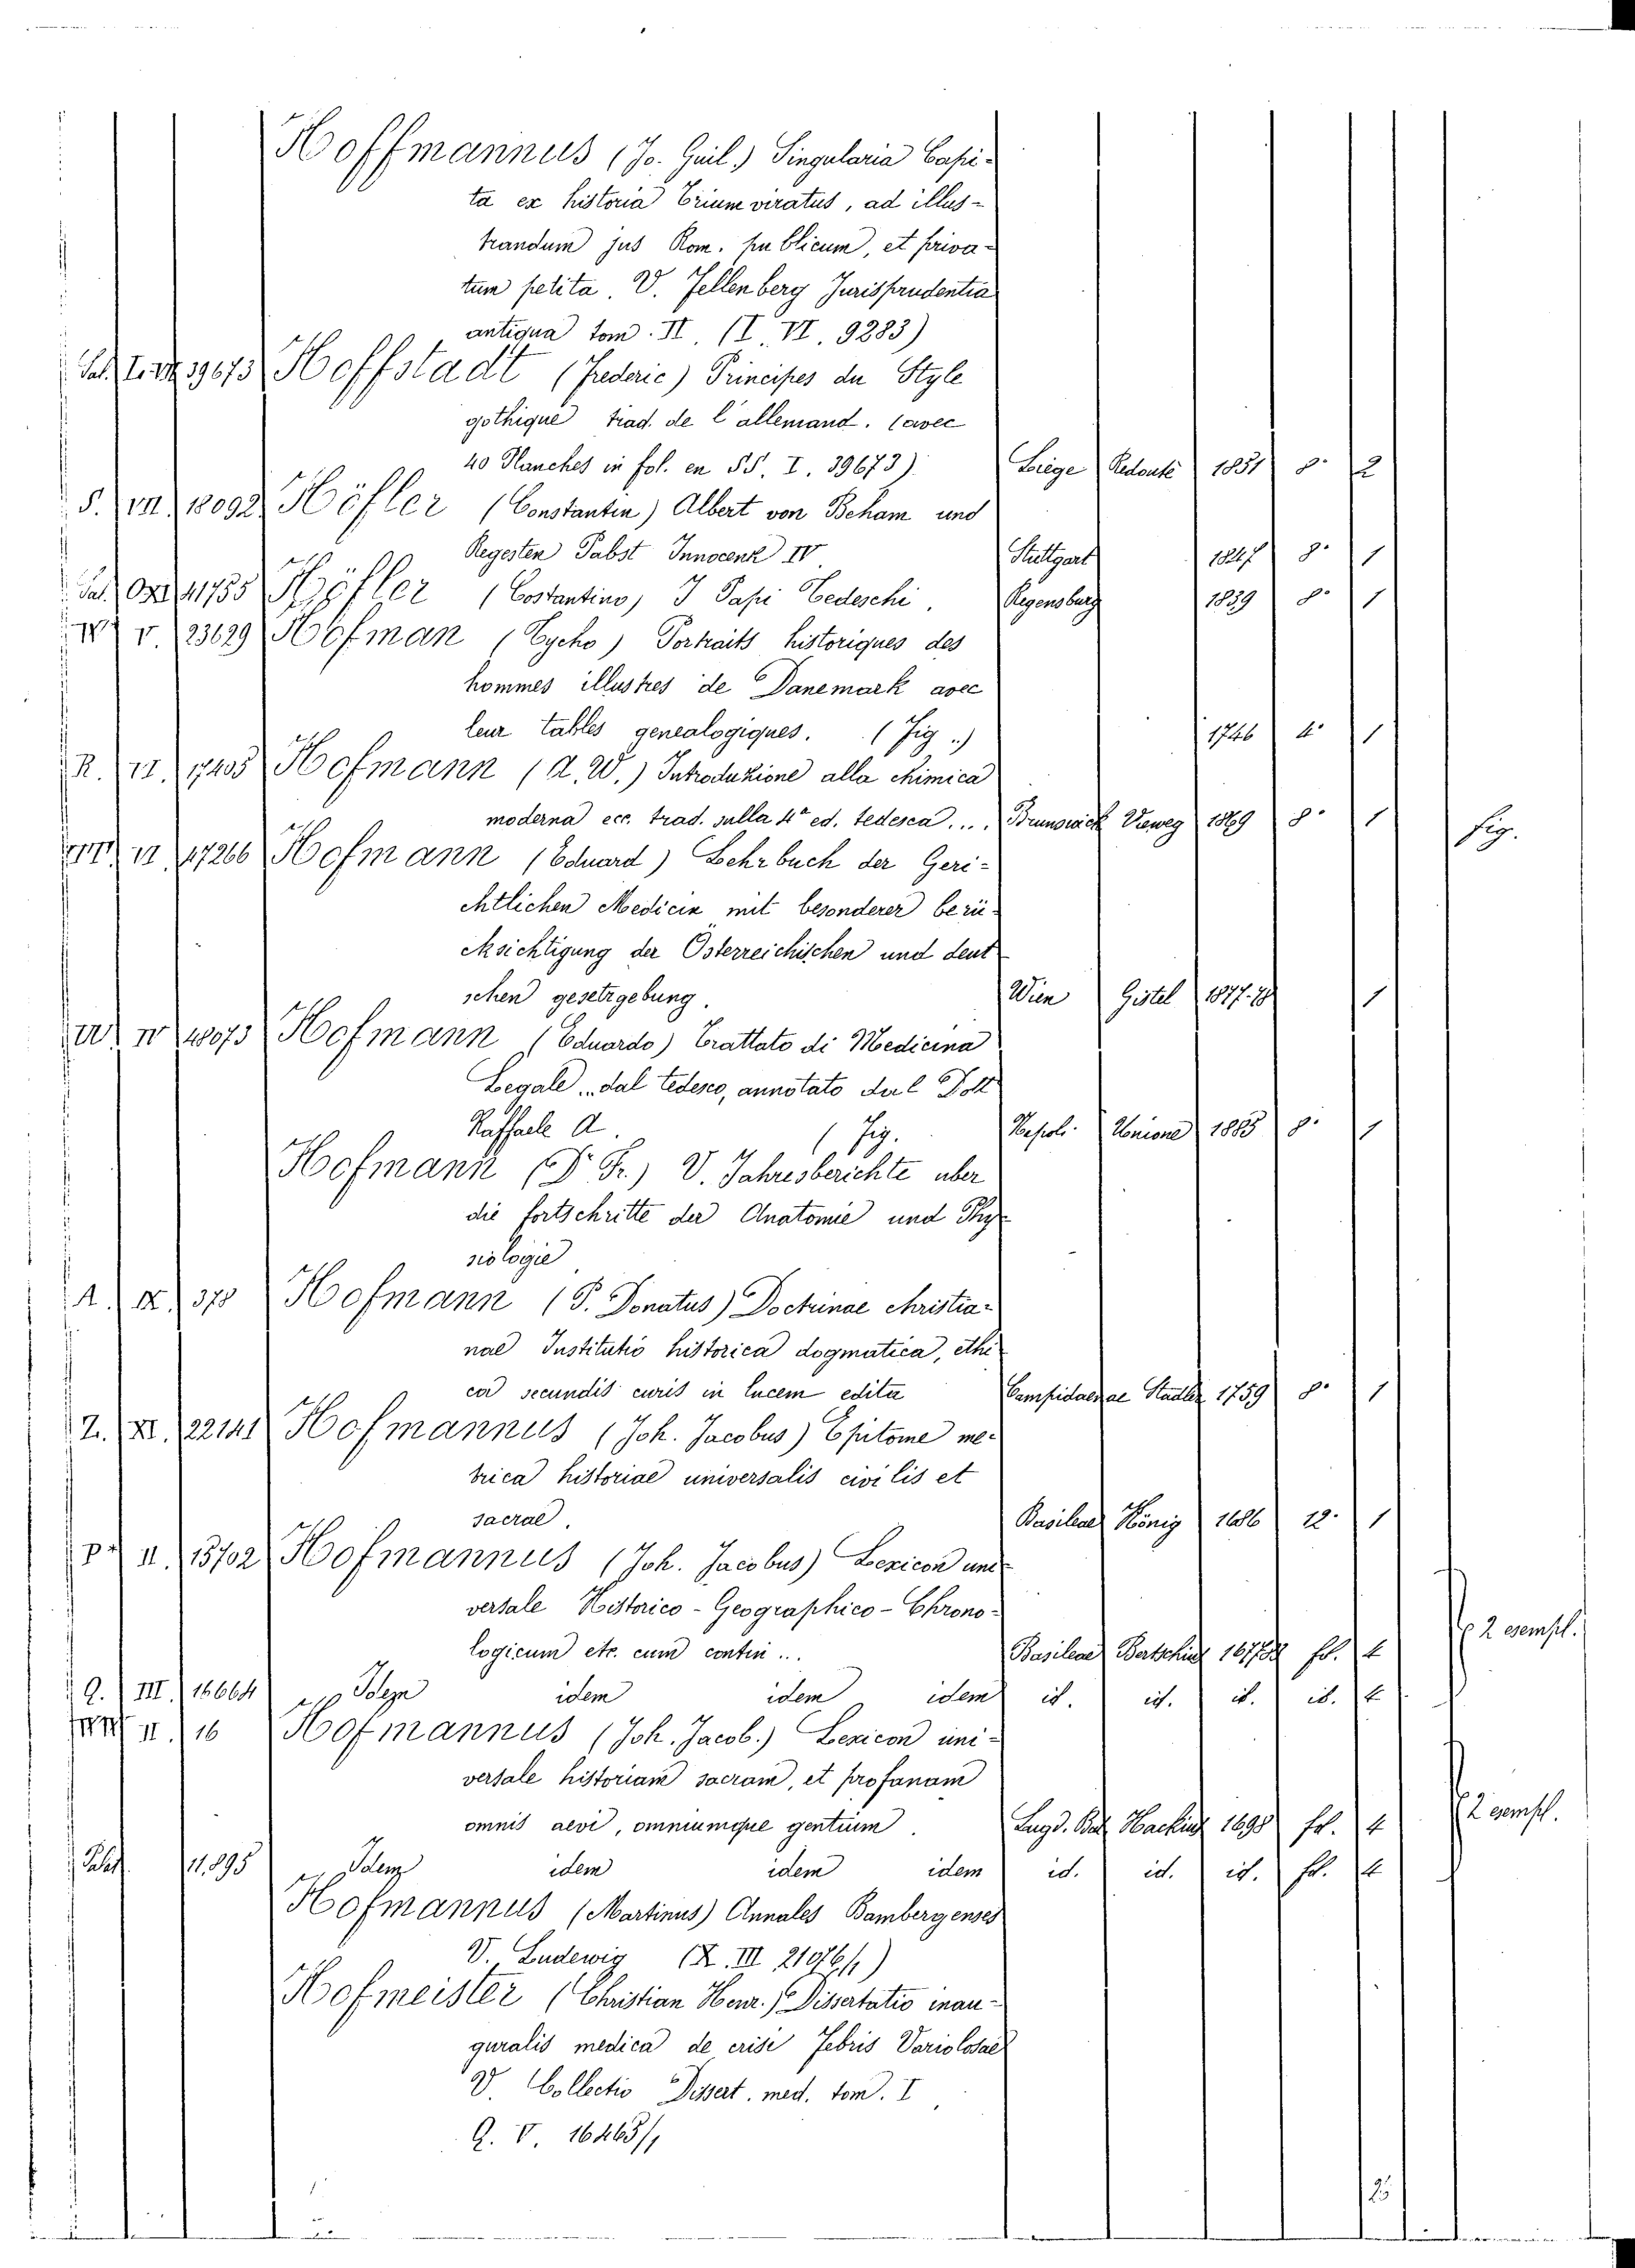 Hoffmannus (Jo. Guil.) Singularia Capi-
ta ex historia Triumviratus, ad illus-
trandum jus Rom. publicum, et priva-
tum petita. V. Fellenberg Jurisprudentia
antiqua tom. II. (I. VI. 9283)
39673 Hoffstadt (Frederic) Principes du Style
gothique trad. de l'allemand. (avec
40 Planches in fol. en SS. I. 39673) Liège Redouté 1851 8° 2
S. VII. 18092 Höfler (Constantin) Albert von Beham und
Regesten Pabst Innocenz IV Stuttgart 1847 8° 1
41755 Höfler (Costantino) I Papi Tedeschi. Regensburg 1839 8° 1
V. 23629 Hofman (Tycho) Portraits historiques des
hommes illustres de Danemark avec
leur tables genealogiques. (Fig.) 1746 4° 1
R. VI. 17405 Hofmann (A. W.) Introduzione alla chimica
moderna ecc. trad. sulla 4ª ed. tedesca.... Brunswick Vieweg 1869 8° 1 fig.
VI 47266 Hofmann (Eduard) Lehrbuch der Geri-
chtlichen Medicin mit besonderer berü-
cksichtigung der Österreichischen und deut
schen gesetzgebung. Wien Gistel 1877-78 1
IV 48073 Hofmann (Eduardo) Trattato di Medicina
Legale.. dal tedesco, annotato dal Dott
Raffaele A. (Fig. Napoli. Unione 1885 8° 1
Hofmann (Dr Fr.) V. Jahresberichte uber
die fortschritte der Anatomie und Phy-
siologie
A. IX. 378 Hofmann (P. Donatus) Doctrinae christia-
nae Institutio historica dogmatica, ethi
ca secundis curis in lucem edita Campidaenae Stadler 1759 8° 1
Z. XI. 22141 Hofmannus (Joh. Jacobus) Epitome me-
trica historiae universalis civilis et
sacrae. Basileae König 1686 12° 1
II. 13702 Hofmannus (Joh. Jacobus) Lexicon uni
versale Historico-Geographico-Chrono-
logicum etc. cum contin... Basileae Bertschius fol. 4 2 esempl.
Q. III. 16664 idem idem idem id. id. id. id. 4
II. 16 Hofmannus (Joh. Jacob.) Lexicon uni-
versale historiam sacram, et profanam
omnis aevi, omniumque gentium. Lugd. Bat. Hackius 1698 fol. 4 2 esempl.
11.895 idem idem idem id. id. id. fol. 4
Hofmannus (Martinus) Annales Bambergenses
V. Ludewig (X. III 21076/1)
Hofmeister (Christian Henr.) Dissertatio inau-
guralis medica de crisi Febris Variolosae
V. Collectio Dissert. med. tom. I
Q. V. 16463/1